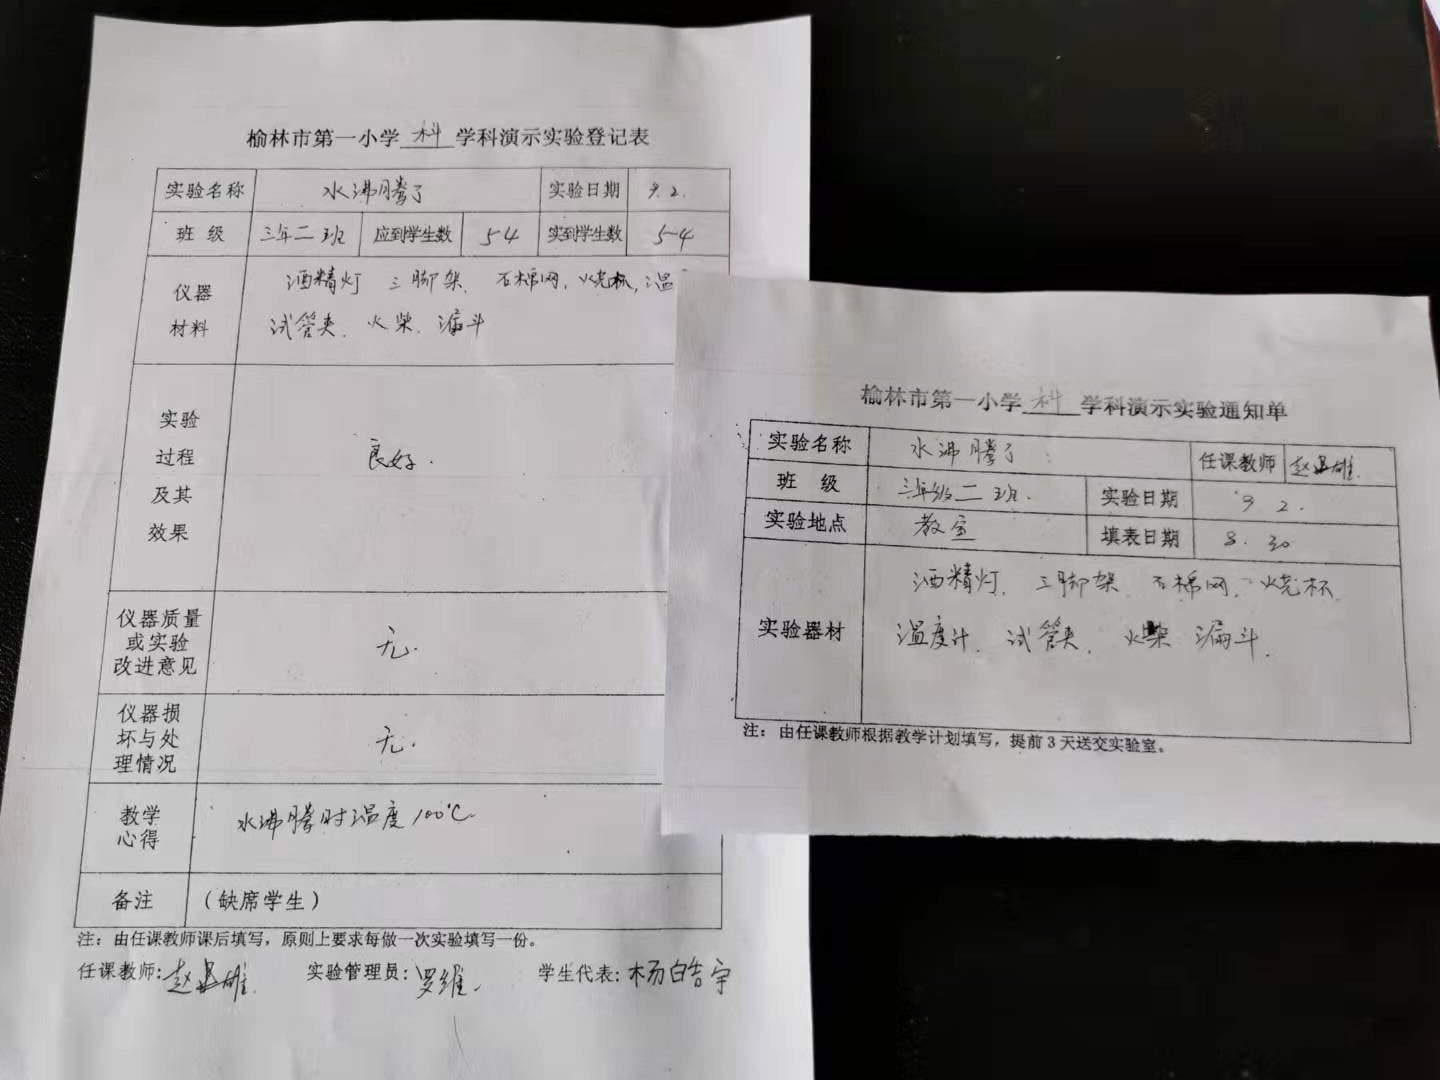 榆林市第一小学 科 学科演示实验登记表
实验名称 水沸腾了 实验日期 9.2.
班 级 三年二班 应到学生数 54 实到学生数 54
仪器 材料 酒精灯 三脚架、石棉网、烧杯,温
试管夹、火柴、漏斗
实验
过程
及其
效果
良好.
仪器质量
或实验
改进意见
无.
仪器损
坏与处
理情况
无.
教学
心得
水沸腾时温度100℃.
备注 (缺席学生)
注:由任课教师课后填写,原则上要求每做一次实验填写一份。
任课教师:赵 雄 实验管理员:罗维. 学生代表:杨皓宇
榆林市第一小学 科 学科演示实验通知单
实验名称 水沸腾了 任课教师 赵 雄.
班 级 三年级二班. 实验日期 9 2.
实验地点 教室 填表日期 8.30
实验器材 酒精灯、三脚架、石棉网、烧杯
温度计、试管夹、火柴 漏斗.
注:由任课教师根据教学计划填写,提前3天送交实验室。